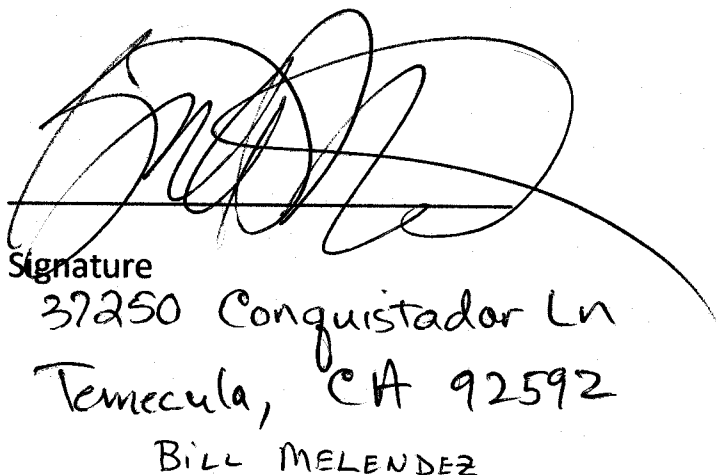 Signature
37250 Conquistador Ln
Temecula, CA 92592
BiLL MELENDEZ